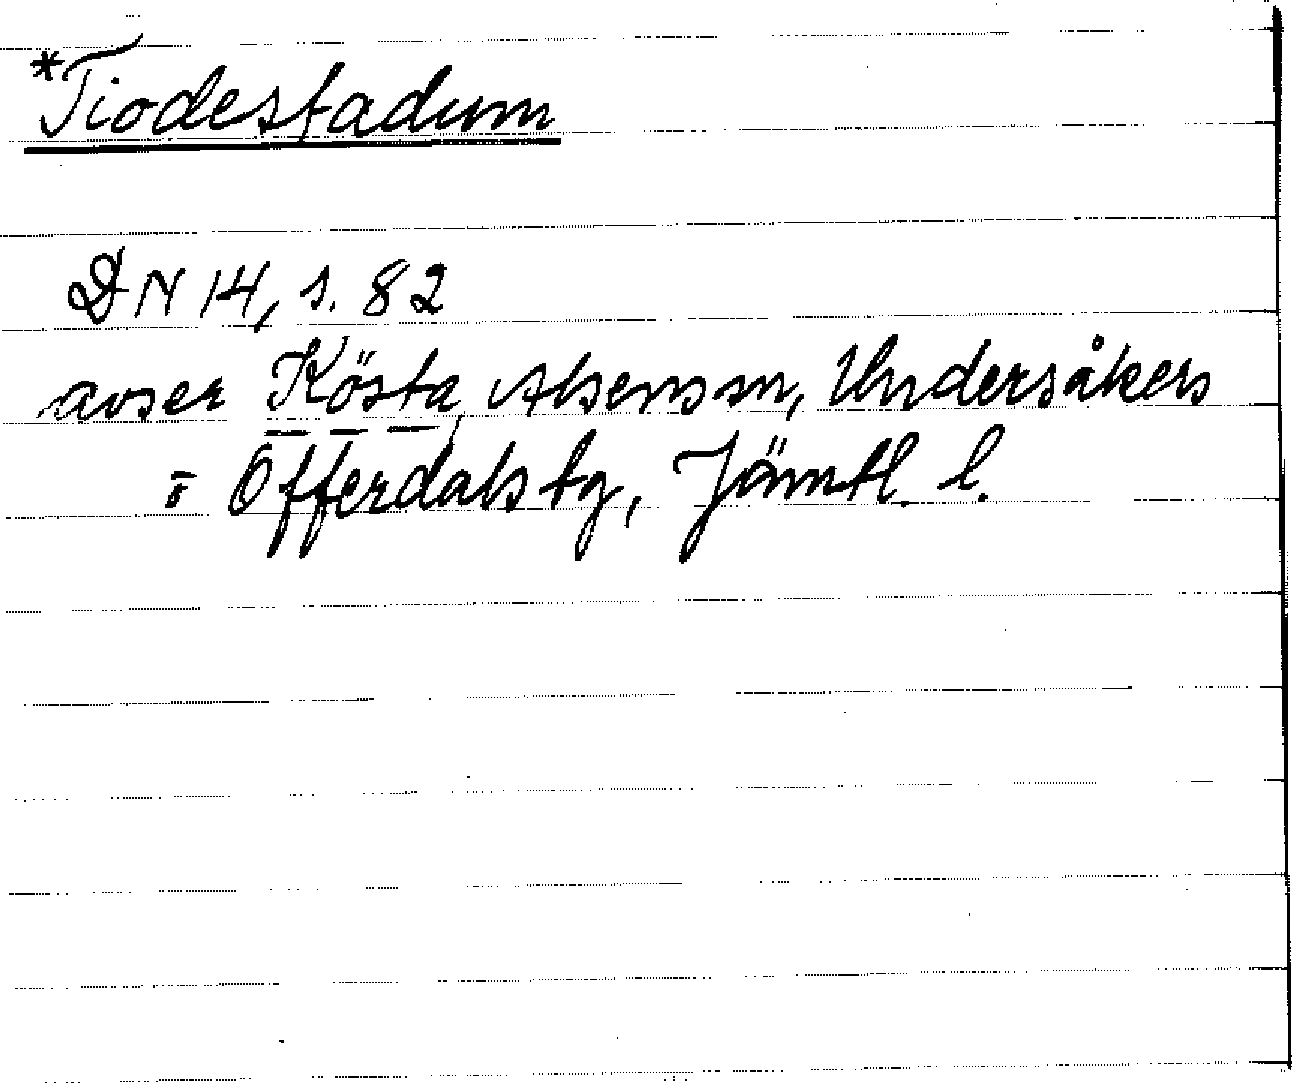 *Tiodestadum
DN 14, s. 82
avser Kösta, Alsens sn, Undersåkers
o Offerdals tg, Jämtl. l.